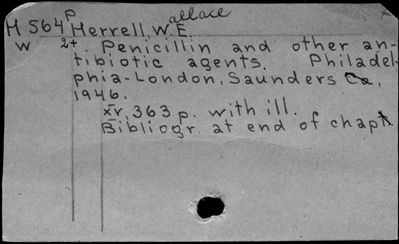 H 564p Herrell, W.E. allace
w 2+. Penicillin and other an-
tibiotic agents. Philadel-
phia-London, Saunders Co,
1946.
xv, 363 p. with ill.
Bibliogr. at end of chapt